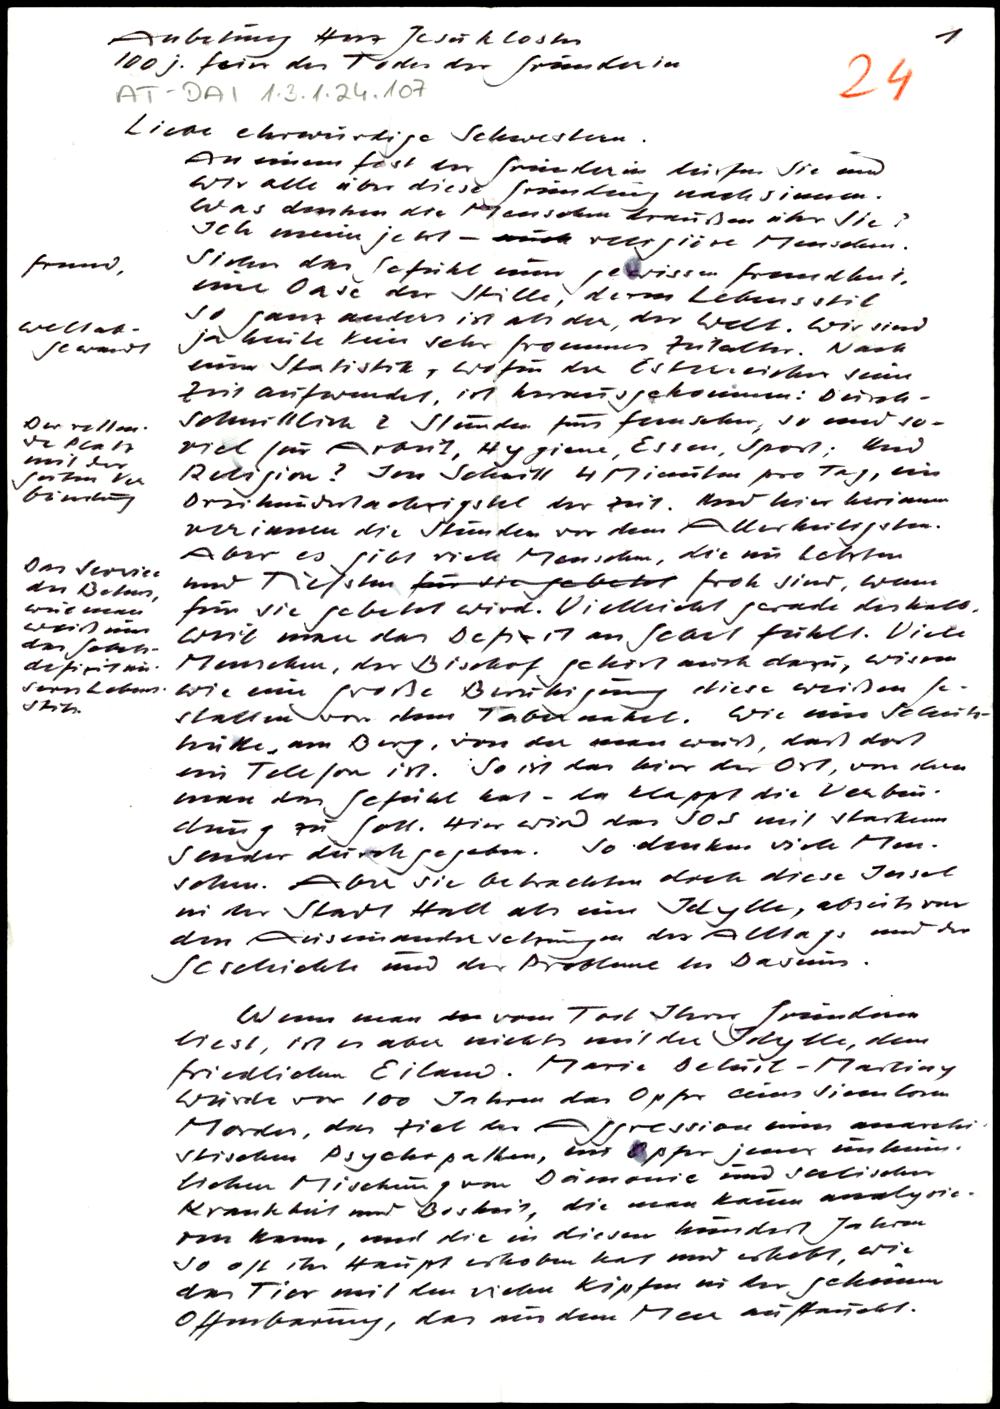 1
Anbetung Herz Jesukloster
100 j. feier des Todes der Gründerin
24
AT-DAI 1.3.1.24.107
Liebe ehrwürdige Schwestern.
An einem fest der Gründerin dürfen Sie und
wir alle über diese Gründung nachsinnen.
Was denken die Menschen draußen über Sie?
Ich meine jetzt - auch religiöse Menschen.
fremd,
Sicher das Gefühl einer gewissen Fremdheit,
eine Oase der Stille, deren Lebensstil
weltab-
gewandt
so ganz anders ist als der, der Welt. Wir sind
ja heute kein sehr frommes Zeitalter. Nach
einer Statistik, wofür der Österreicher seine
Zeit aufwendet, ist herausgekommen: Durch-
schnittlich 2 Stunden fürs fernsehen, so und so-
Der retten-
de Platz
mit der
guten Ver
bindung
viel für Arbeit, Hygiene, Essen, Sport; Und
Religion? Im Schnitt 4 Minuten pro Tag, ein
Dreihundertachzigstel der Zeit. Und hier herinnen
verrinnen die Stunden vor dem Allerheiligsten.
Aber es gibt viele Menschen, die im Letzten
Das Service
des Betens,
weil man
weiß um
das Gebets-
defizit un-
seres Lebens-
stils.
und Tiefsten für sie gebetet froh sind, wenn
für sie gebetet wird. Vielleicht gerade deshalb,
weil man das Defizit an Gebet fühlt. Viele
Menschen, der Bischof gehört auch dazu, wissen
wie eine große Beruhigung diese weißen Ge-
stalten vor dem Tabernakel. Wie eine Schutz-
hütte am Berg, von der man weiß, daß dort
ein Telefon ist. So ist das hier der Ort, von dem
man das Gefühl hat - da klappt die Verbin-
dung zu Gott. Hier wird das SOS mit starkem
Sender durchgegeben. So denken viele Men-
schen. Aber sie betrachten doch diese Insel
in der Stadt Hall als eine Idylle, abseits von
den Auseinandersetzungen des Alltags und der
Geschichte und der Probleme des Daseins.
Wenn man vom Tod Ihrer Gründerin
liest, ist es aber nichts mit der Idylle, dem
friedlichen Eiland. Marie Deluil-Martiny
wurde vor 100 Jahren das Opfer eines sinnlosen
Mordes, das Ziel der Aggression eines anarchi-
stischen Psychopathen, ein Opfer jener unheim-
lichen Mischung von Dämonie und seelischer
Krankheit und Bosheit, die man kaum analysie-
ren kann, und die in diesen hundert Jahren
so oft ihr Haupt erhoben hat und erhebt, wie
das Tier mit den vielen Köpfen in der geheimen
Offenbarung, das aus dem Meer auftaucht.